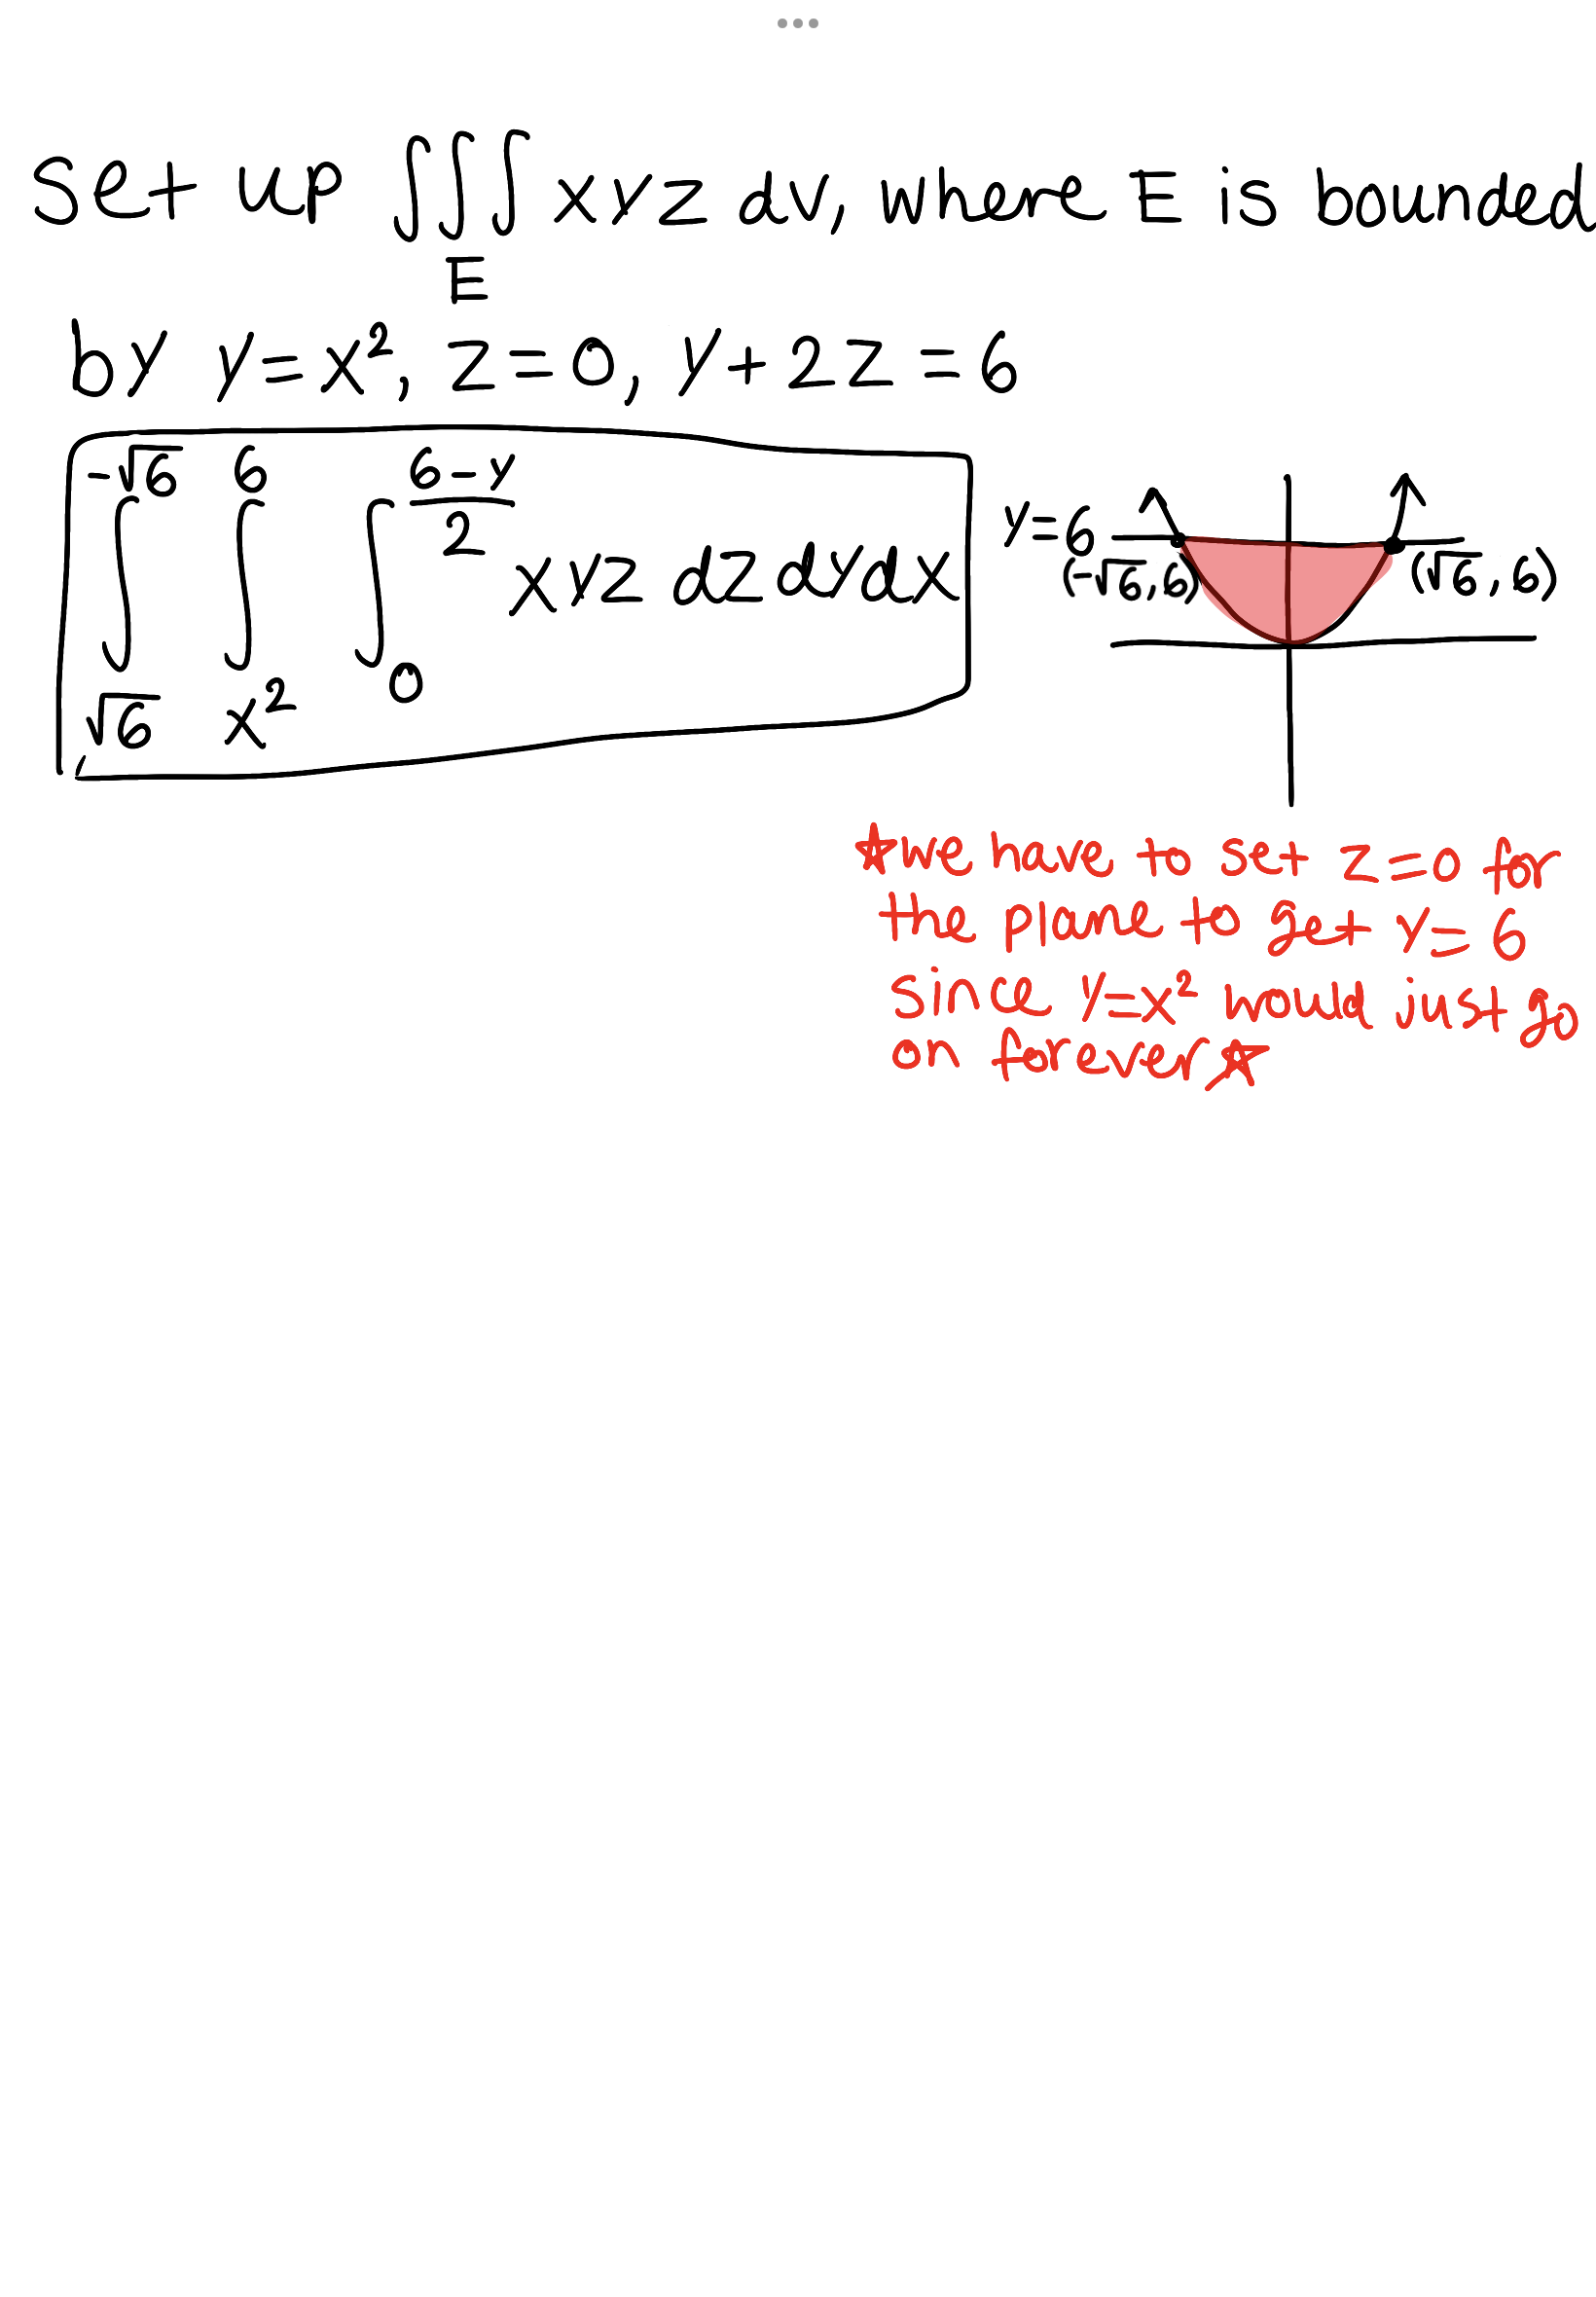 Set up ∭_E xyz dv, where E is bounded
by y=x², z=0, y+2z=6
∫_{√6}^{-√6} ∫_{x²}^{6} ∫_{0}^{(6-y)/2} xyz dz dy dx
y=6
(-√6, 6) (√6, 6)
☆we have to set z=0 for
the plane to get y=6
since y=x² would just go
on forever☆